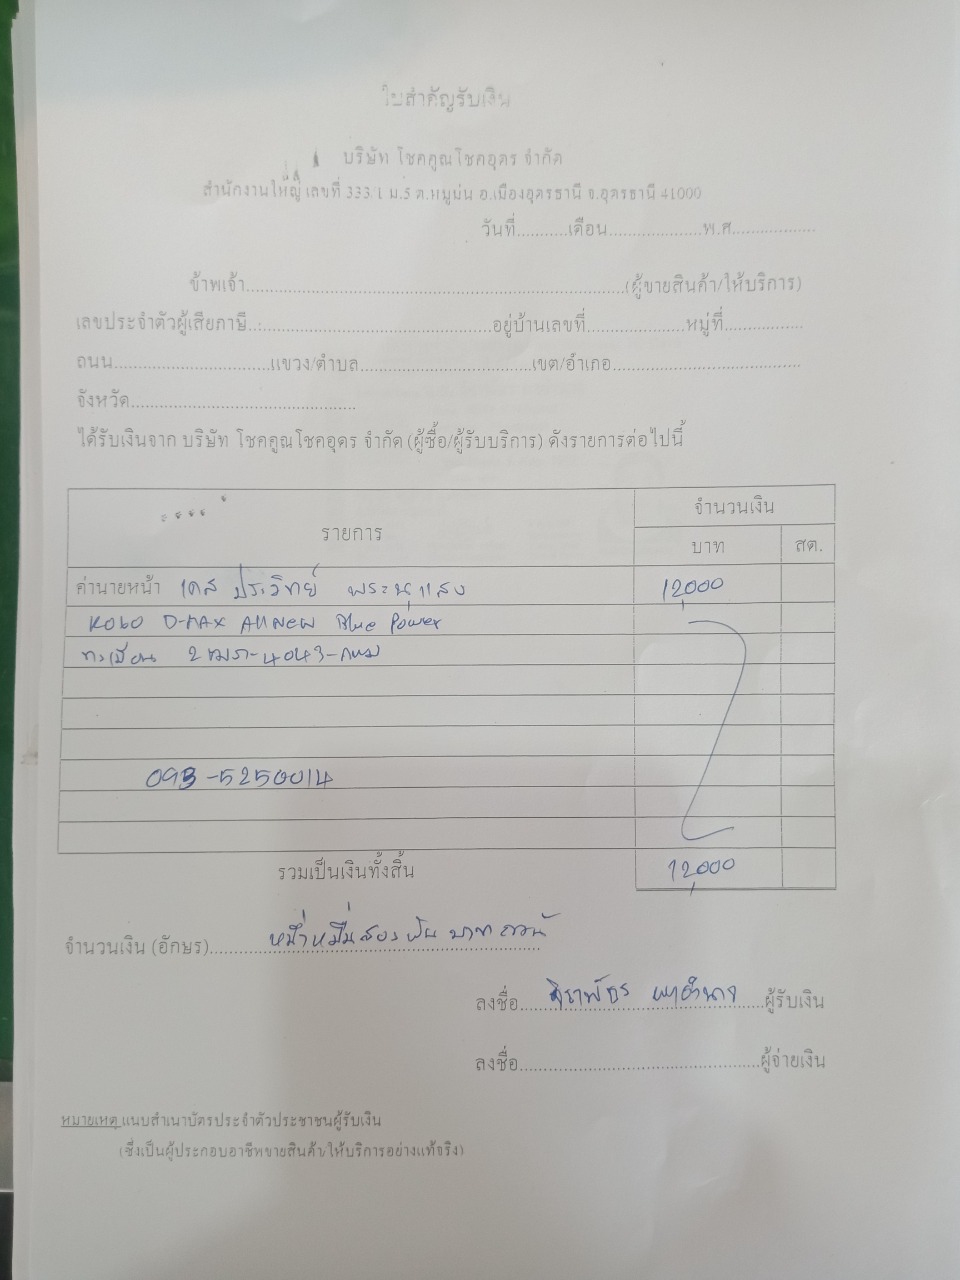 ใบสำคัญรับเงิน
บริษัท โชคคูณโชคอุดร จำกัด
สำนักงานใหญ่ เลขที่ 333/1 ม.5 ต.หมูม่น อ.เมืองอุดรธานี จ.อุดรธานี 41000
วันที่...........เดือน....................พ.ศ..................
ข้าพเจ้า.................................................................................(ผู้ขายสินค้า/ให้บริการ)
เลขประจำตัวผู้เสียภาษี..:.................................................อยู่บ้านเลขที่.....................หมู่ที่.................
ถนน.................................แขวง/ตำบล.....................................เขต/อำเภอ........................................
จังหวัด................................................
ได้รับเงินจาก บริษัท โชคคูณโชคอุดร จำกัด (ผู้ซื้อ/ผู้รับบริการ) ดังรายการต่อไปนี้
รายการ จำนวนเงิน
บาท สต.
ค่านายหน้า เคส ประวิทย์ 12,000
D-MAX All New Blue Power
ทะเบียน
093-5250014
รวมเป็นเงินทั้งสิ้น 12,000
จำนวนเงิน (อักษร) หนึ่งหมื่นสองพันบาทถ้วน
ลงชื่อ ผู้รับเงิน
ลงชื่อ...................................................ผู้จ่ายเงิน
หมายเหตุ แนบสำเนาบัตรประจำตัวประชาชนผู้รับเงิน
(ซึ่งเป็นผู้ประกอบอาชีพขายสินค้า/ให้บริการอย่างแท้จริง)